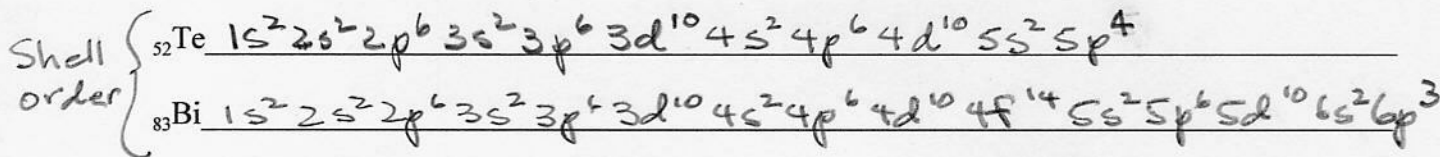 Shell order
₅₂Te 1s² 2s² 2p⁶ 3s² 3p⁶ 3d¹⁰ 4s² 4p⁶ 4d¹⁰ 5s² 5p⁴
₈₃Bi 1s² 2s² 2p⁶ 3s² 3p⁶ 3d¹⁰ 4s² 4p⁶ 4d¹⁰ 4f¹⁴ 5s² 5p⁶ 5d¹⁰ 6s² 6p³